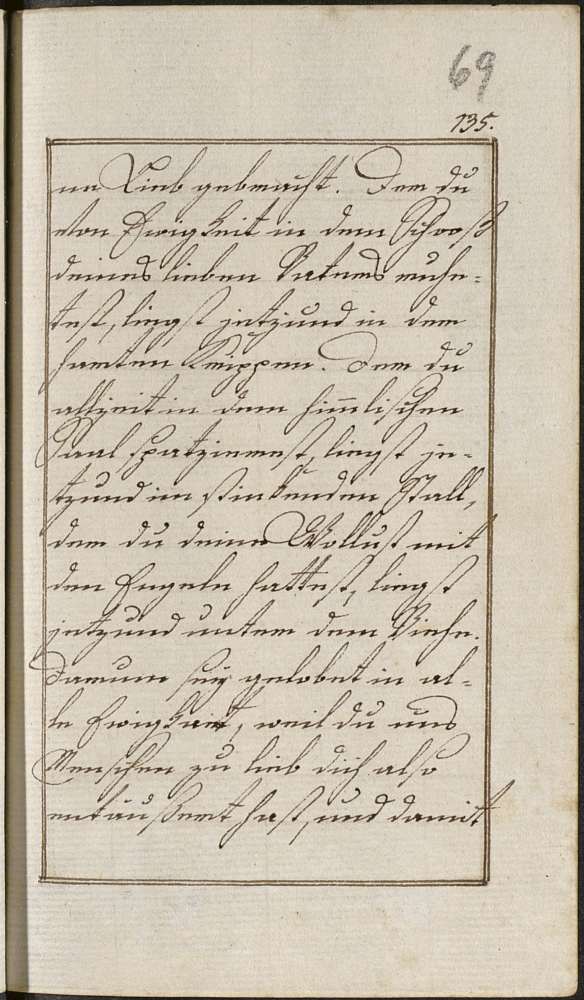 69
135.
ne Lieb gebracht. Der du
von Ewigkeit in dem Schooß
deines lieben Vaters ruhe=
test, liegst jetzund in der
harten Krippen. Der du
allzeit in dem him̅lischen
Saal spatzierest, liegst je=
tzund im stinkenden Stall,
der du deine Wollust mit
den Engeln hattest, liegst
jetzund unter dem Viehe.
Darum sey gelobet in al=
le Ewigkeit, weil du uns
Menschen zu lieb dich also
entäußert hast, und damit